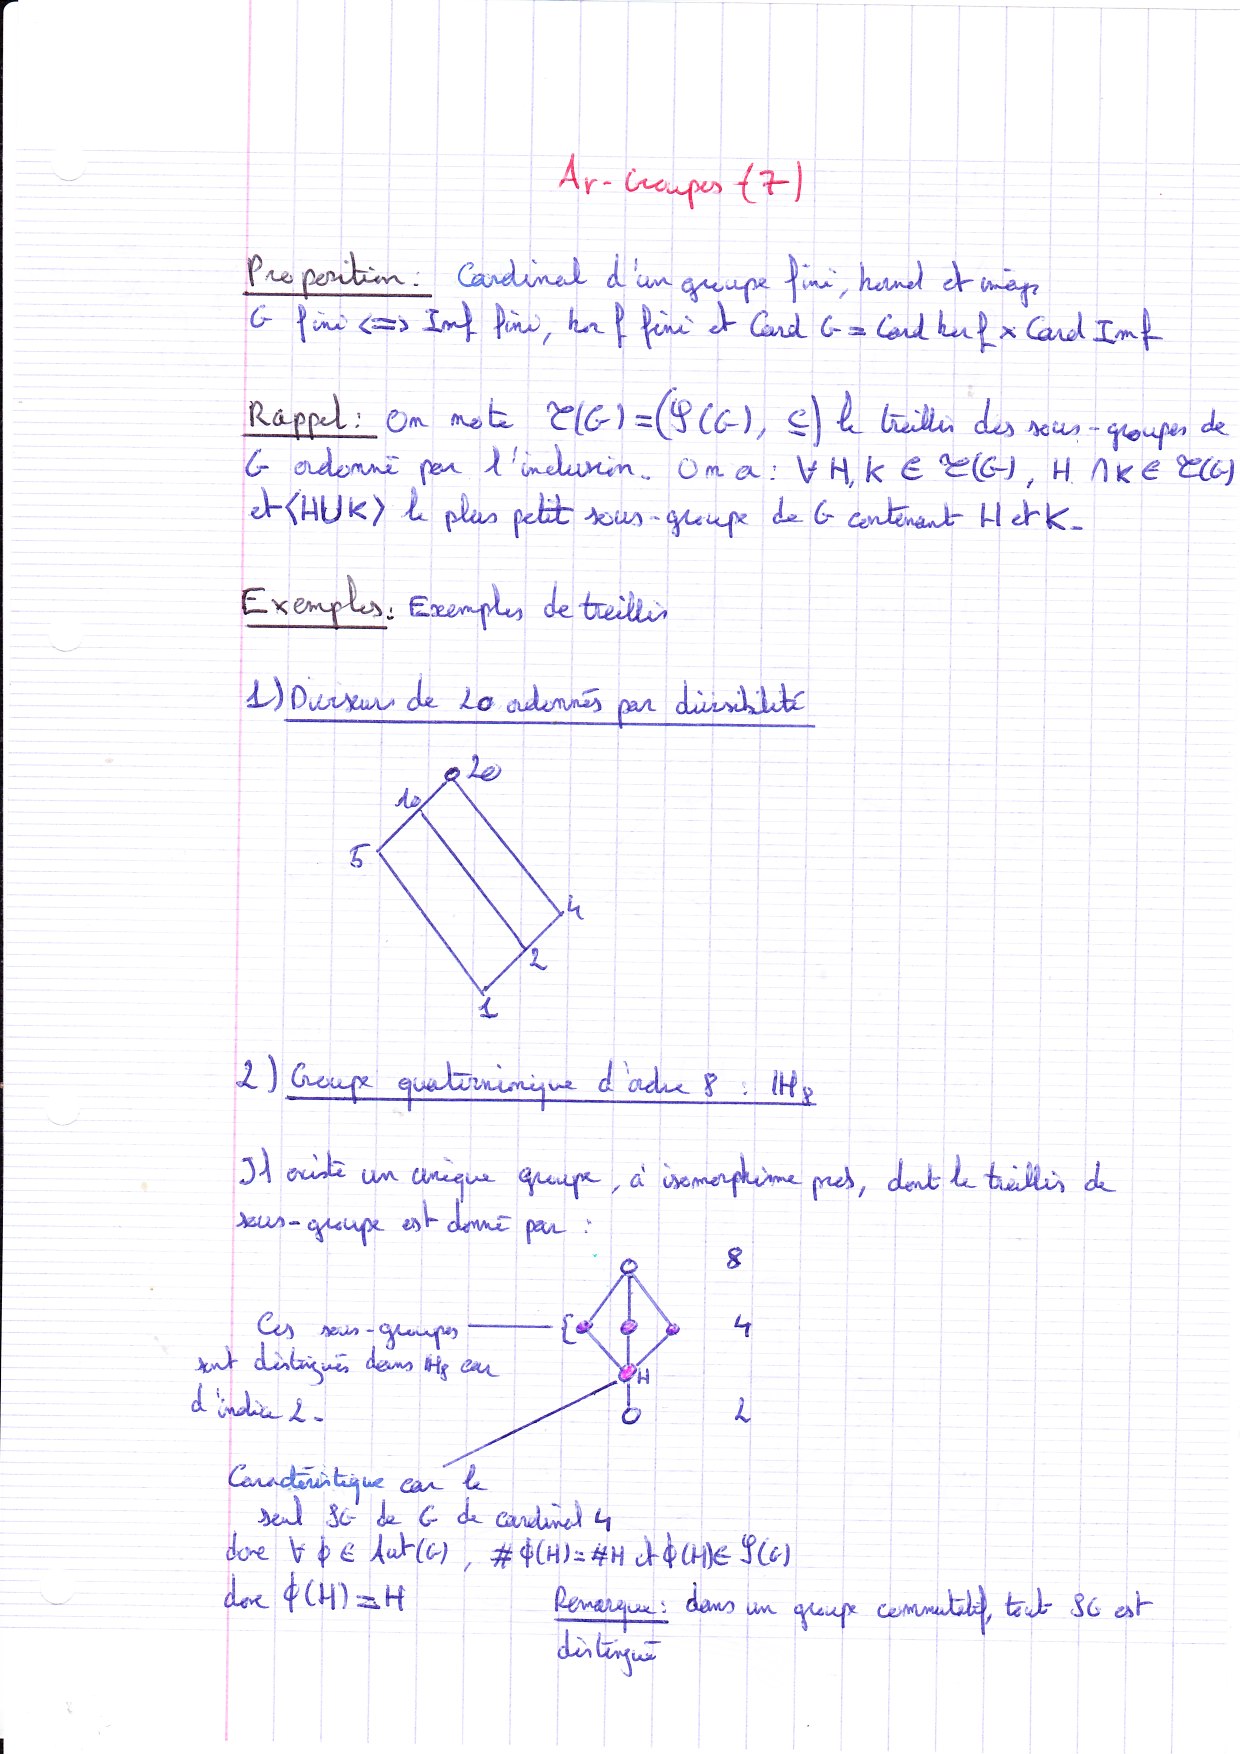 Ar-Groupes (7)
Proposition: Cardinal d'un groupe fini, kernel et image
G fini <=> Imf fini, ker f fini et Card G = Card kerf × Card Imf
Rappel: On note 𝒯(G) = (𝒮(G), ⊆) le treillis des sous-groupes de
G ordonné par l'inclusion. On a : ∀ H, K ∈ 𝒯(G), H ∩ K ∈ 𝒯(G)
et ⟨H∪K⟩ le plus petit sous-groupe de G contenant H et K.
Exemples: Exemples de treillis
1) Diviseurs de 20 ordonnés par divisibilité
20
10
5
4
2
1
2) Groupe quaternionique d'ordre 8 : ℍ₈
Il existe un unique groupe, à isomorphisme près, dont le treillis de
sous-groupe est donné par :
8
Ces sous-groupes { 4
sont distingués dans ℍ₈ car
H
d'indice 2. 2
Caractéristique car le
seul SG de G de cardinal 4
donc ∀ ϕ ∈ Aut(G), # ϕ(H) = #H et ϕ(H) ∈ 𝒮(G)
donc ϕ(H) = H
Remarque: dans un groupe commutatif, tout SG est
distingué